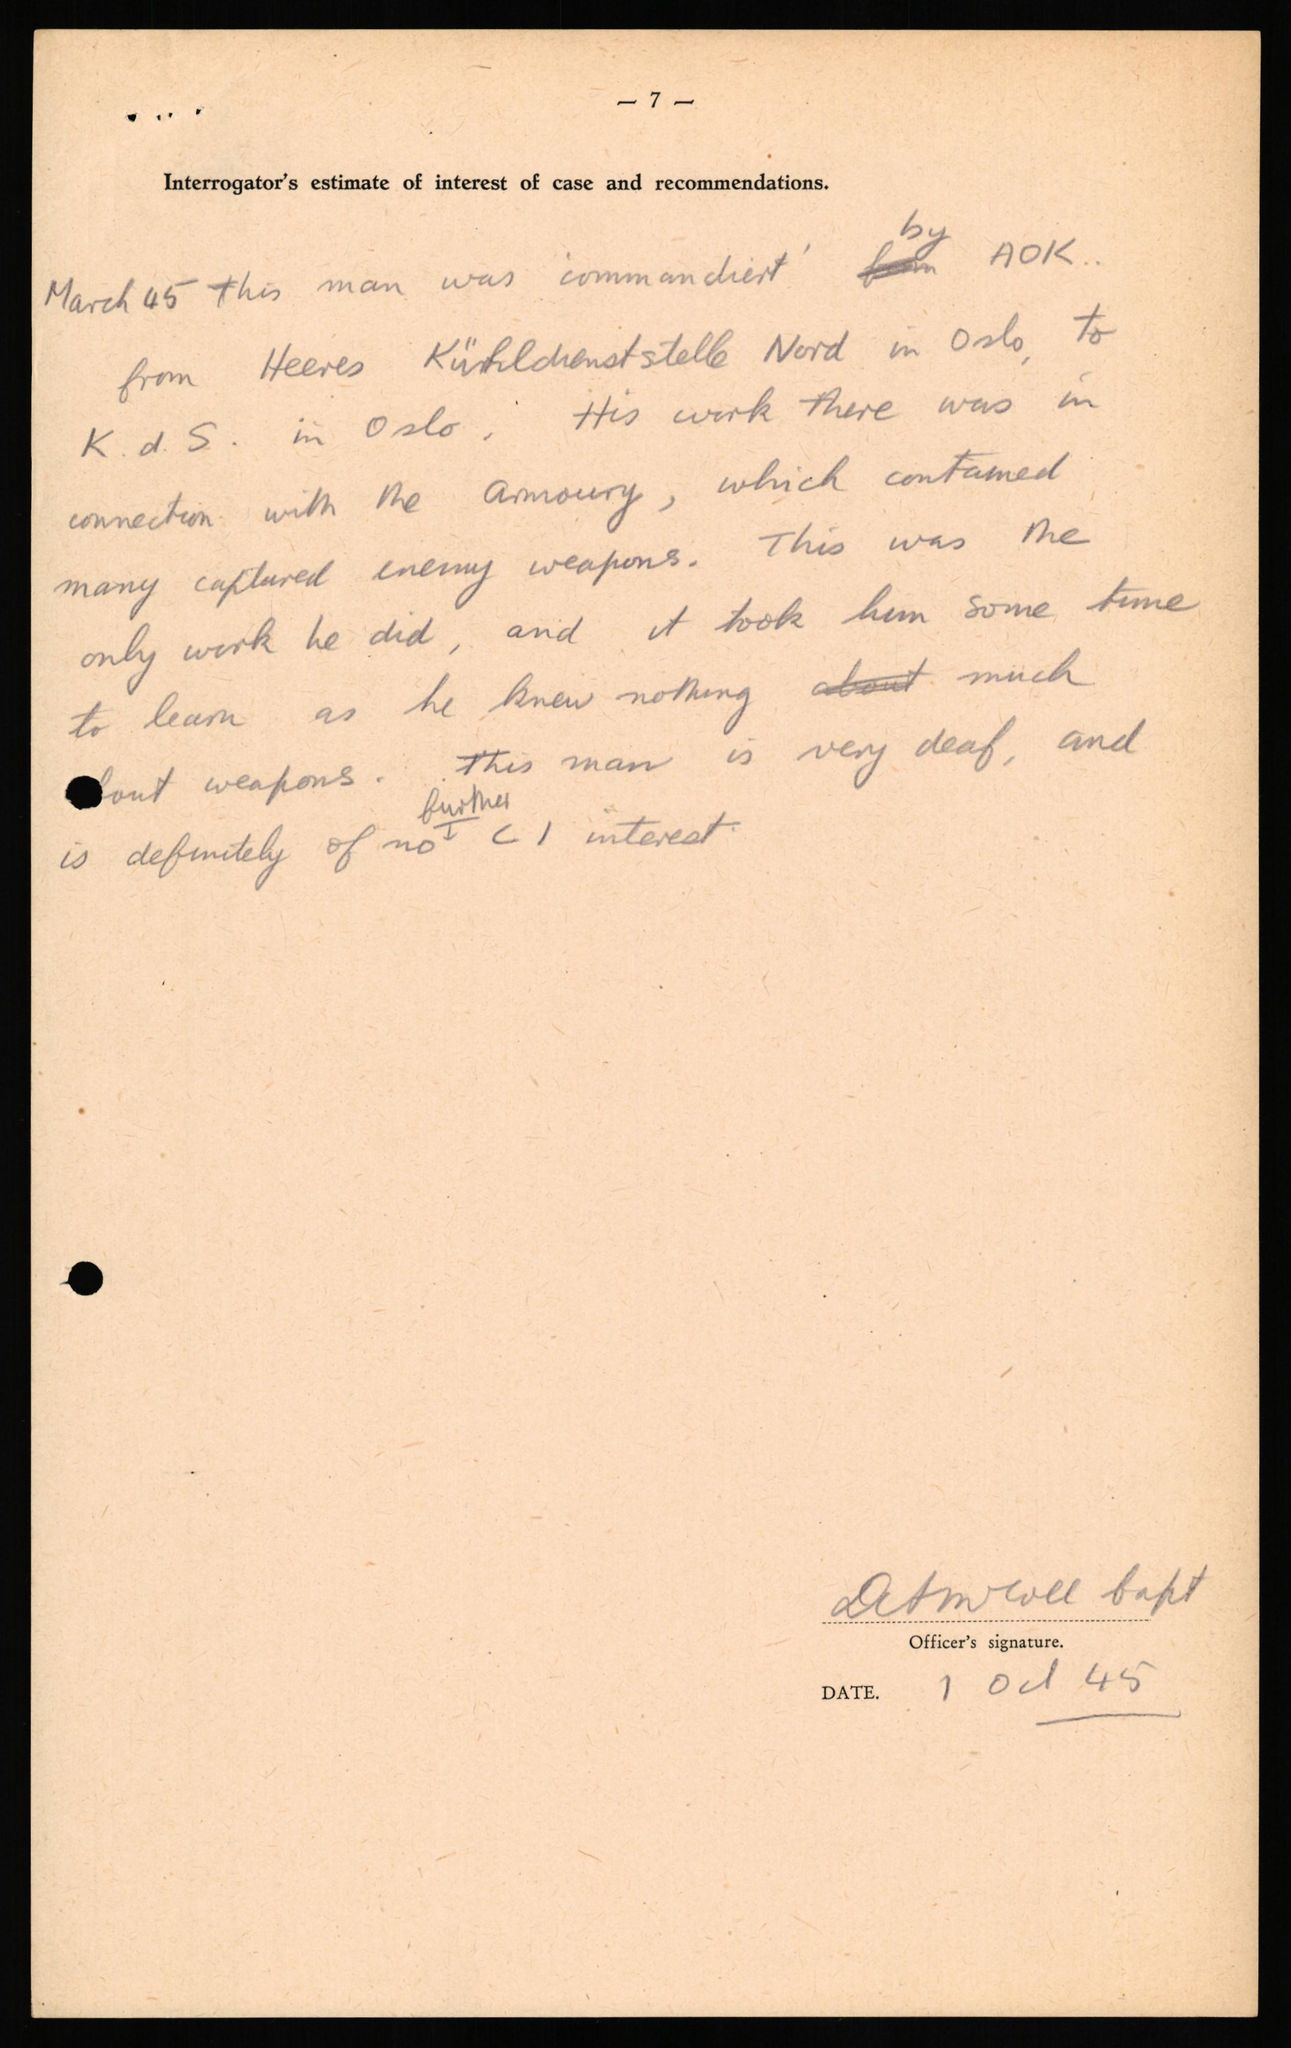 — 7 —
Interrogator's estimate of interest of case and recommendations.
by
March 45 this man was 'commandiert' ~~from~~ AOK..
from Heeres Nord in Oslo, to
K. d. S. in Oslo. His work there was in
connection with the Armoury, which contained
many captured enemy weapons. This was the
only work he did, and it took him some time
to learn as he knew nothing ~~about~~ much
about weapons. This man is very deaf, and
further
is definitely of no CI interest.
Capt
Officer's signature.
DATE. 1 Oct 45